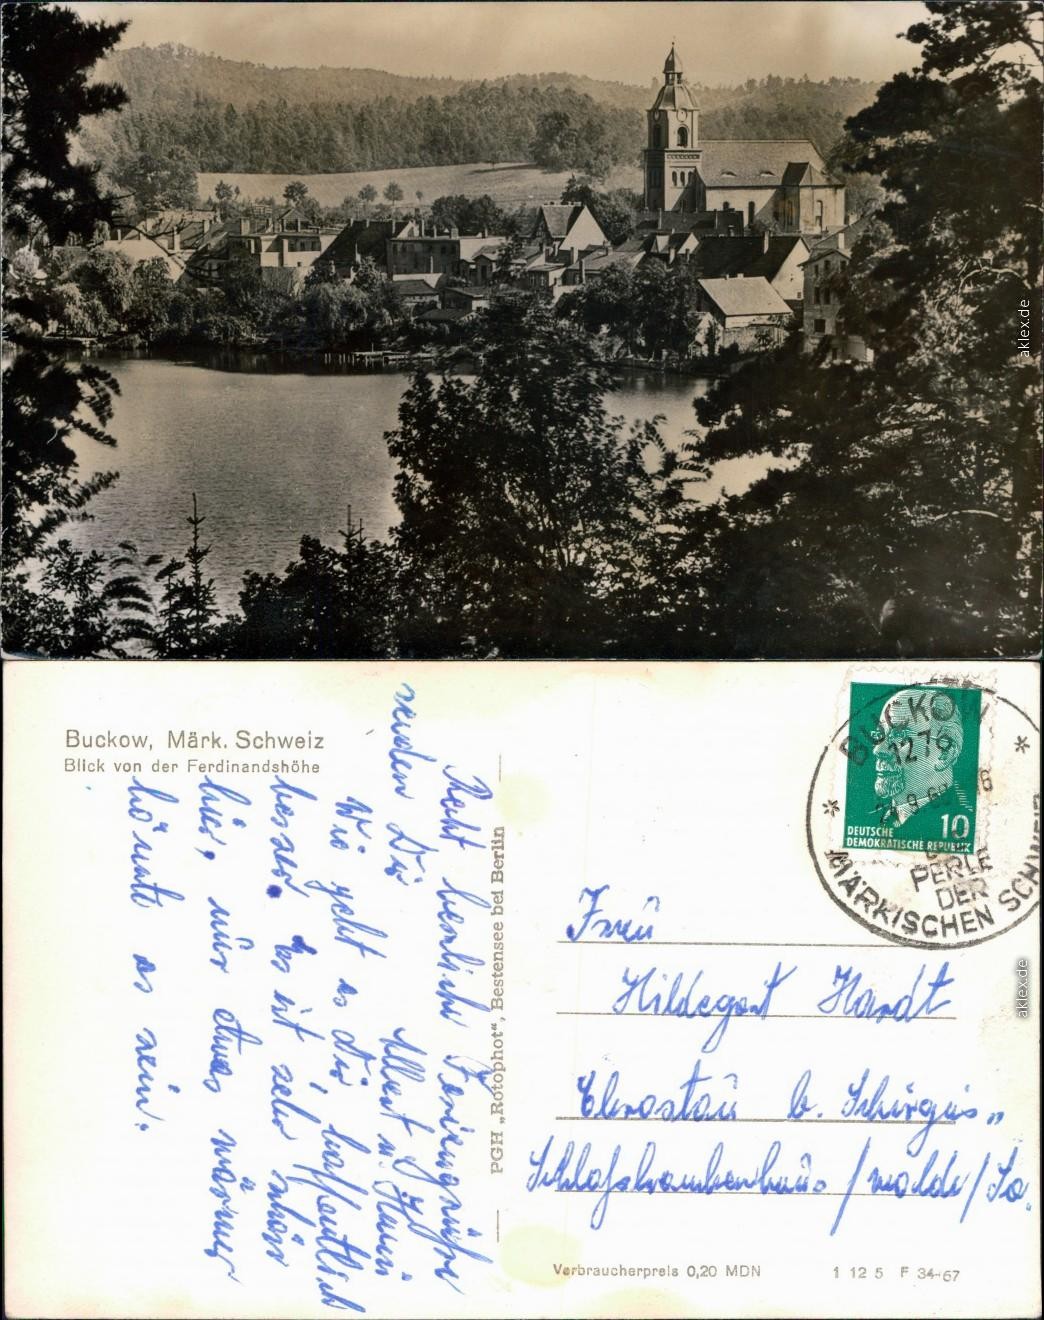 aklex.de
Buckow, Märk. Schweiz
Blick von der Ferdinandshöhe
Recht herzliche Feriengrüße
senden Dir
Albert u. Hanni
Wie geht es Dir, hoffentlich
besser. Es ist sehr schön
hier, nur etwas wärmer
könnte es sein.
PGH „Rotophot“, Bestensee bei Berlin
BUCKOW
1279
24.9.68
6
PERLE
DER
MÄRKISCHEN SCHWEIZ
10
DEUTSCHE
DEMOKRATISCHE REPUBLIK
Frau
Hildegart Hardt
Chrostau b. Schirgis„
Schlafkrankenhaus /walde/Sa.
aklex.de
Verbraucherpreis 0,20 MDN
1 12 5 F 34/67